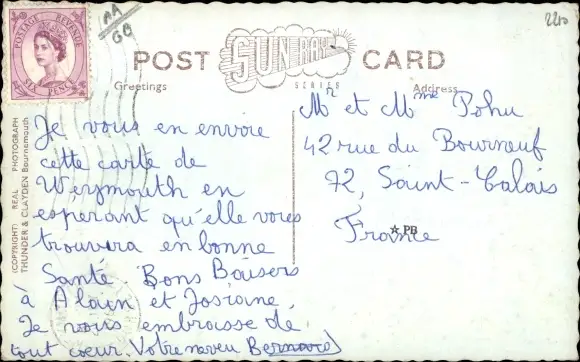 AA
GB
2210
POSTAGE REVENUE
SIX PENCE
POST CARD
SUN RAY
SERIES
Greetings
Address
(COPYRIGHT) REAL PHOTOGRAPH
THUNDER & CLAYDEN Bournemouth
Je vous en envoie
cette carte de
Weymouth en
esperant qu'elle vous
trouvera en bonne
Santé Bons Baisers
à Alain et Josiane.
Je vous embrasse de
tout coeur. Votre neveu Bernard
Mr et Mme Pohu
42 rue du Bourneuf
72, Saint-Calais
France
☆ PB